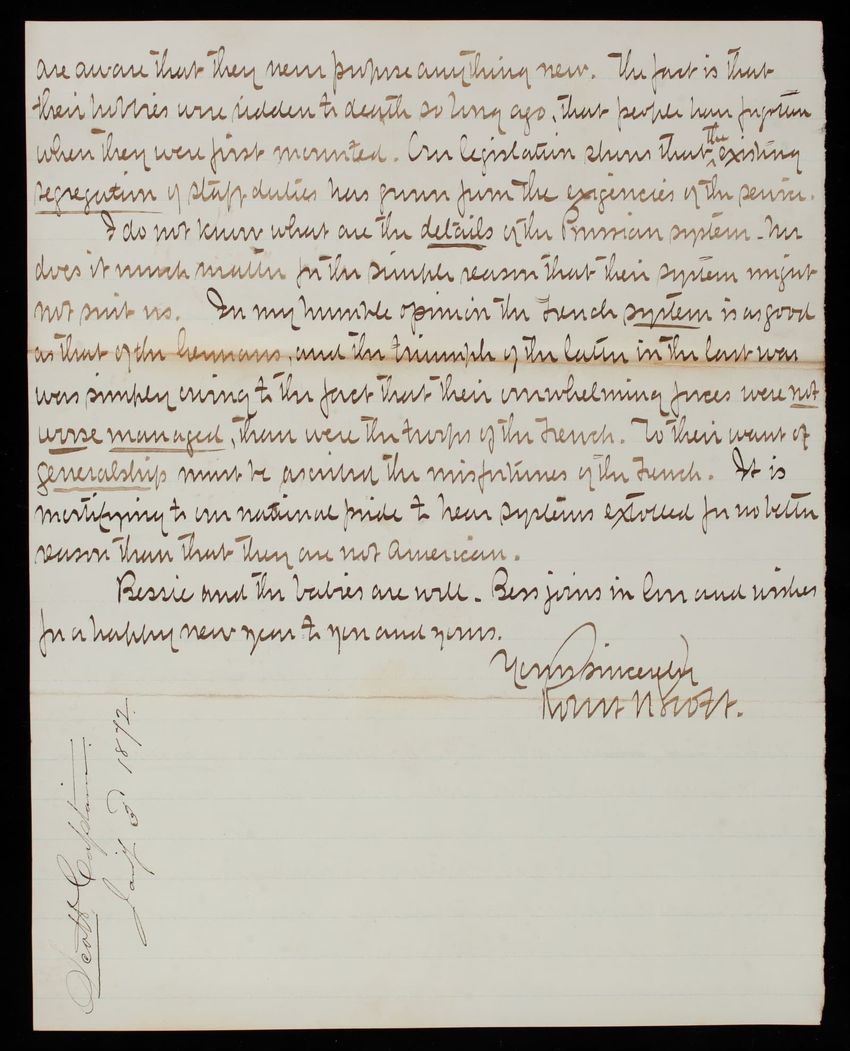 are aware that they never propose anything new. The fact is that
their hobbies were ridden to death so long ago, that people have forgotten
when they were first mounted. Our legislation shows that the existing
segregation of staff duties has grown from the exigencies of the service.
I do not know what are the details of the Prussian system - Nor
does it much matter for the simple reason that their system might
not suit us. In my humble opinion the French system is as good
as that of the Germans, and the triumph of the latter in the last war
was simply owing to the fact that their overwhelming forces were not
worse managed, than were the troops of the French. To their want of
generalship must be ascribed the misfortunes of the French. It is
mortifying to our national pride to hear systems extolled for no better
reason than that they are not American.
Bessie and the babies are well - Bess joins in love and wishes
for a happy new year to you and yours.
Yours sincerely
Robert N Scott.
Scott Captain
Jany 3d 1872